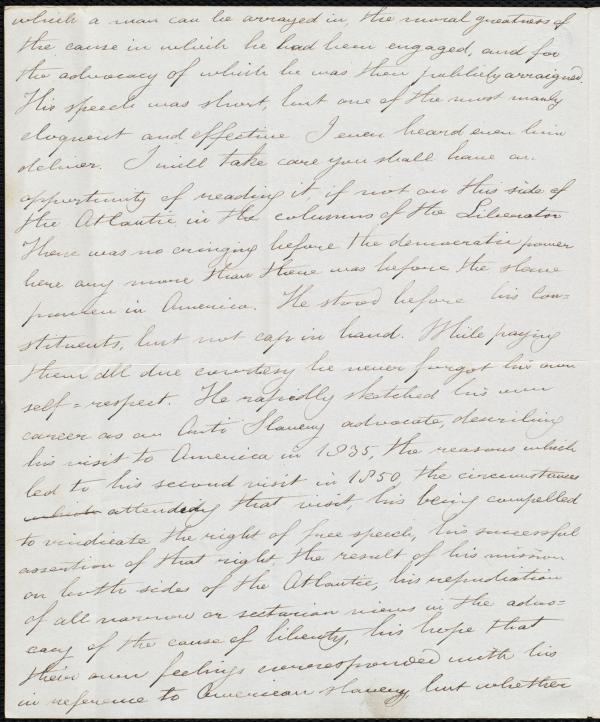 which a man can be arrayed in, the moral greatness of
the cause in which he had been engaged, and for
the advocacy of which he was then publicly arraigned.
His speech was short, but one of the most manly
eloquent and effective I even heard even him
deliver. I will take care you shall have an
opportunity of reading it if not on this side of
the Atlantic in the columns of the Liberator
There was no cringing before the democratic power
here any more than there was before the slave
power in America. He stood before his Con=
stituents, but not cap in hand. While paying
them all due courtesy he never forgot his own
self=respect. He rapidly sketched his own
career as an Anti Slavery advocate, describing
his visit to America in 1835, the reasons which
led to his second visit in 1850, the circumstances
which attending that visit, his being compelled
to vindicate the right of free speech, his successful
assertion of that right, the result of his mission
on both sides of the Atlantic, his repudiation
of all narrow or sectarian views in the advo=
cacy of the cause of liberty, his hope that
their own feelings corresponded with his
in reference to American slavery, but whether